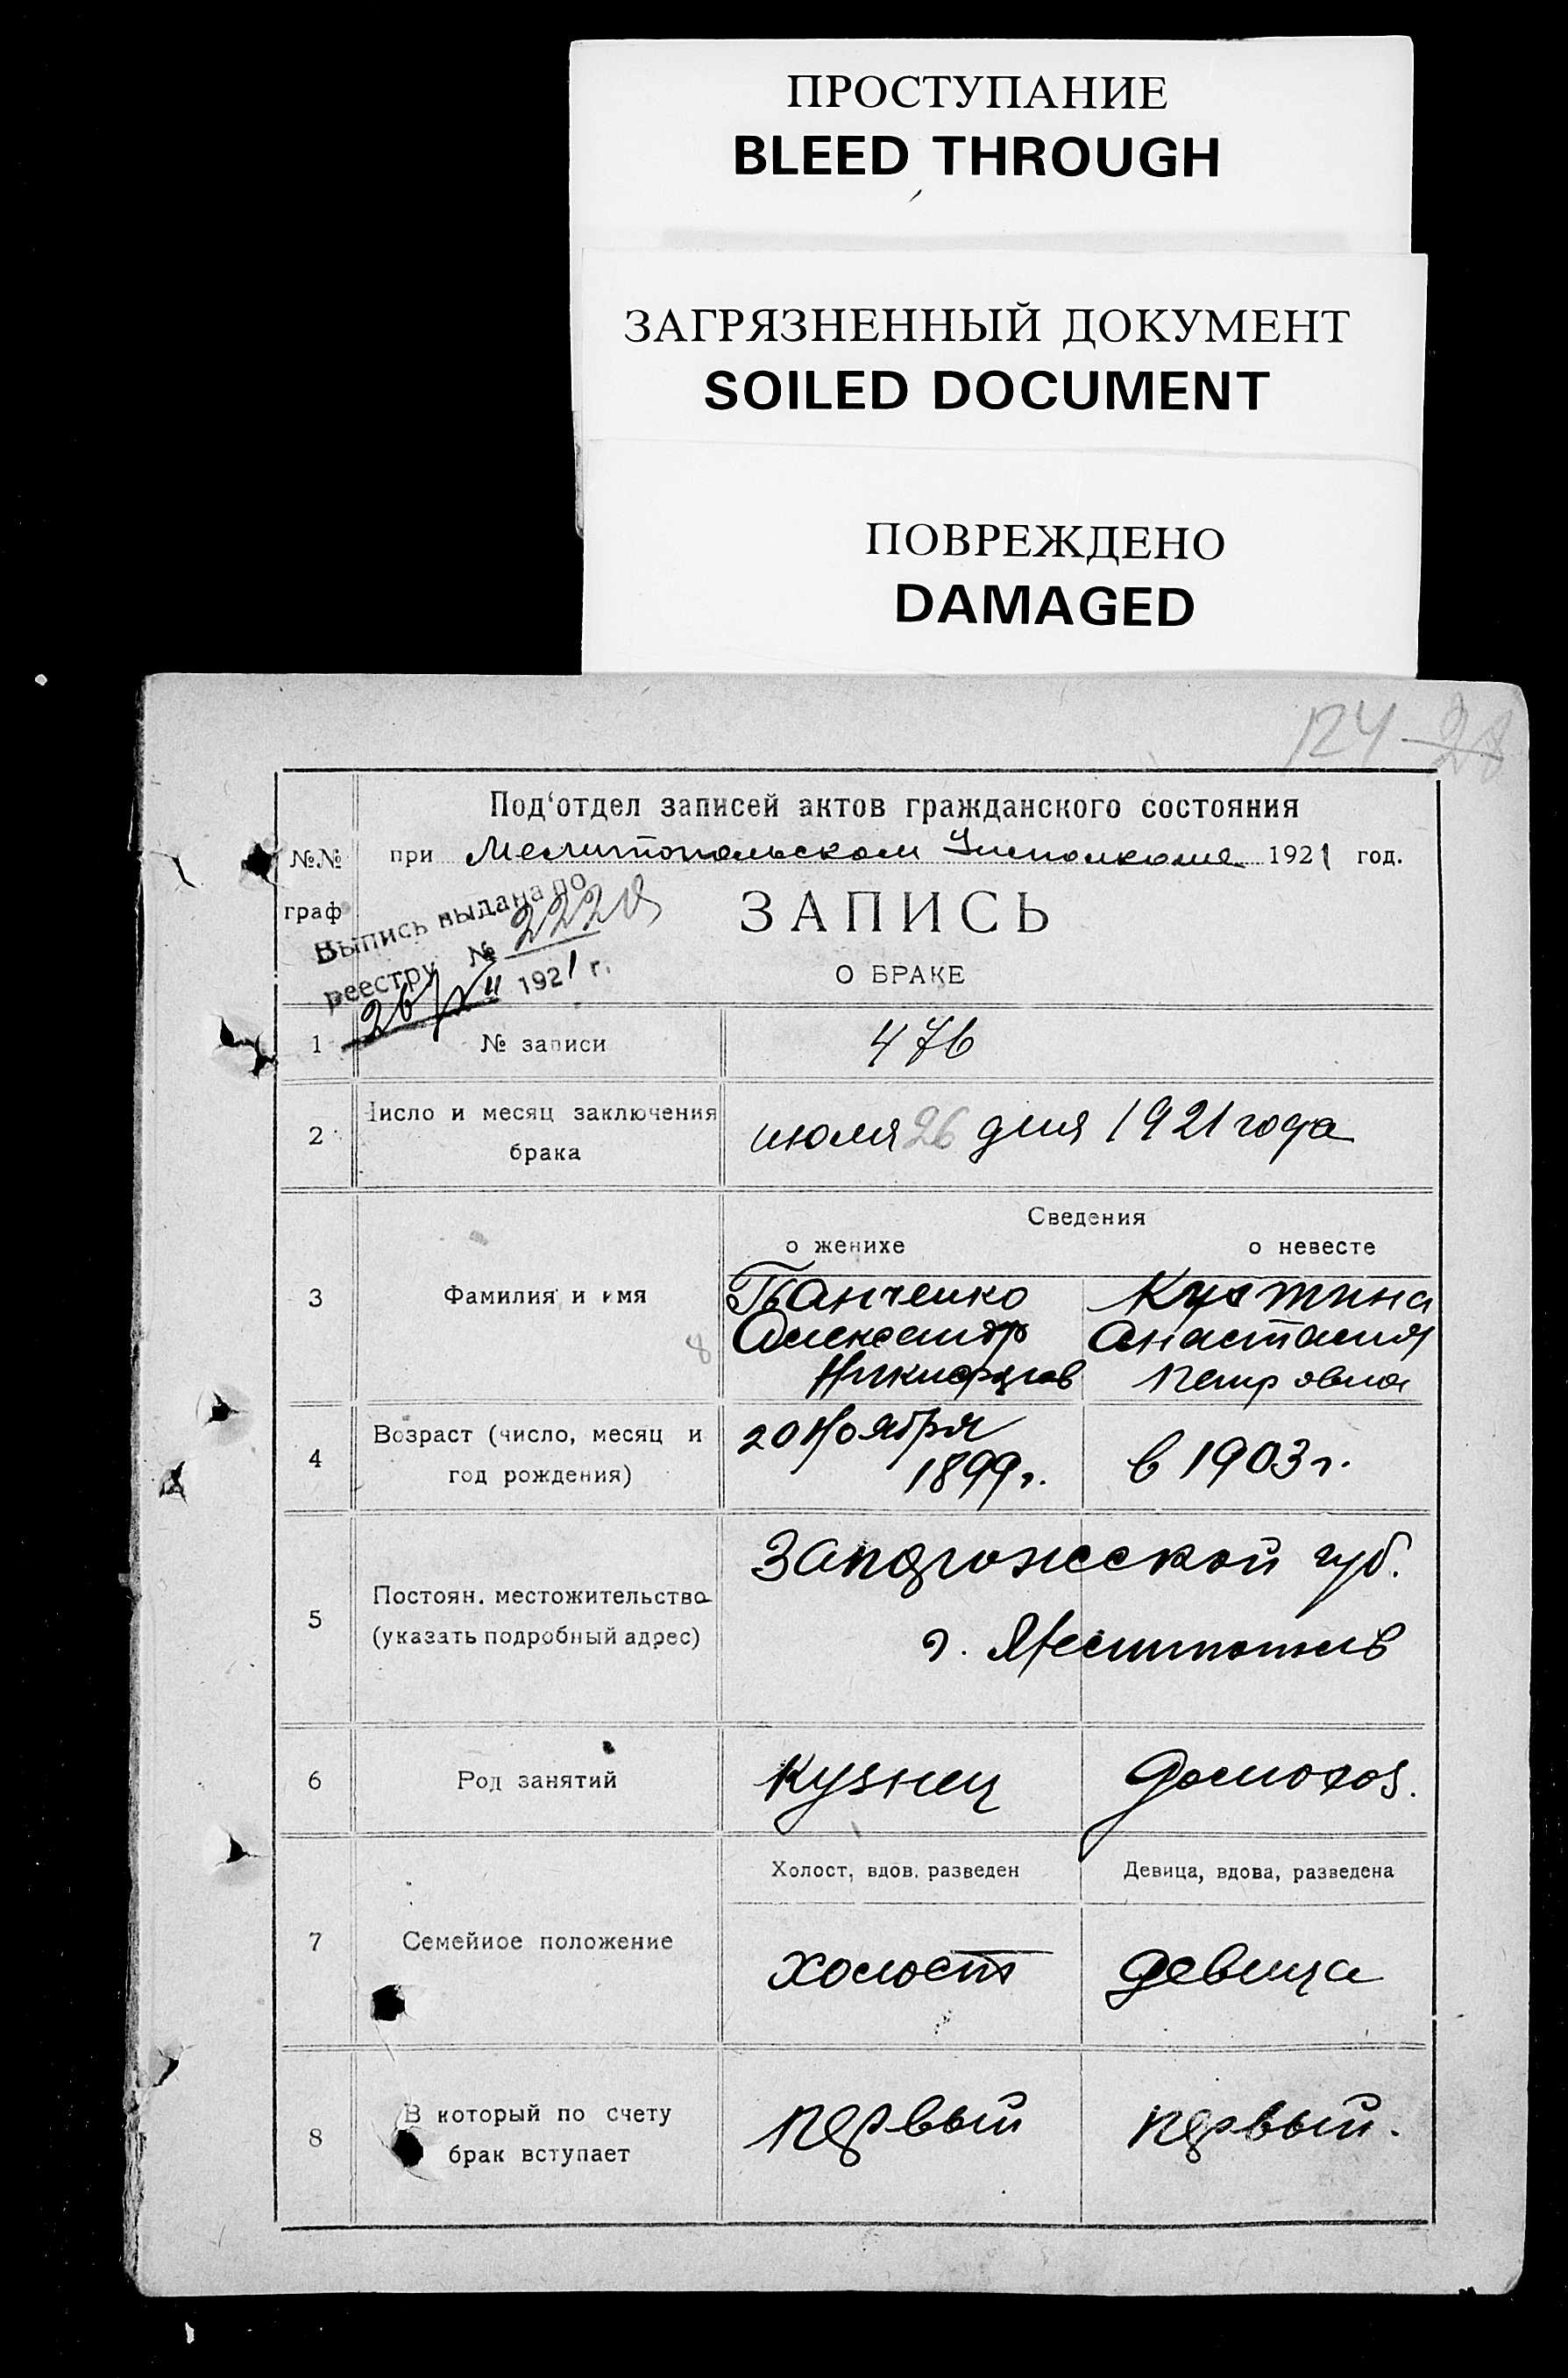 ПРОСТУПАНИЕ
BLEED THROUGH
ЗАГРЯЗНЕННЫЙ ДОКУМЕНТ
SOILED DOCUMENT
ПОВРЕЖДЕНО
DAMAGED
124 28
Под‘отдел записей актов гражданского состояния
№№ граф
при Мелитопольском Исполкоме 1921 год.
Выпись выдана по
реестру №
26/XII 1921 г.
ЗАПИСЬ
О БРАКЕ
1 № записи 476
2 Число и месяц заключения
брака
июля 26 дня 1921 года
Сведения
о женихе о невесте
3 Фамилия и имя
Анастасия
Александр
Петровна
8
4 Возраст (число, месяц и
год рождения)
20 Ноября
1899 г.
в 1903 г.
5 Постоян. местожительство
(указать подробный адрес)
Запорожской губ.
г. Мелитополь
6 Род занятий кузнец домохоз.
Холост, вдов. разведен Девица, вдова, разведена
7 Семейное положение холост девица
8 В который по счету
брак вступает
первый первый.